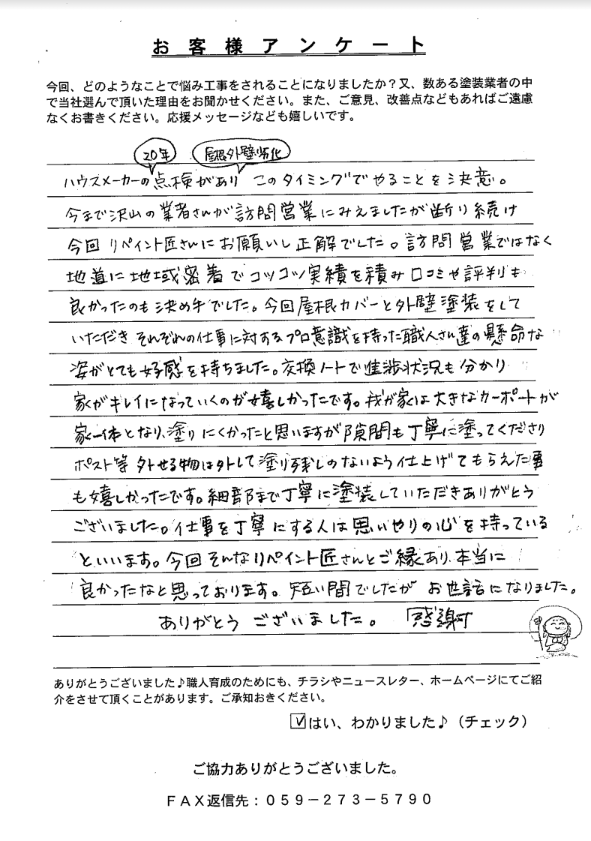 お客様アンケート
今回、どのようなことで悩み工事をされることになりましたか？又、数ある塗装業者の中
で当社選んで頂いた理由をお聞かせください。また、ご意見、改善点などもあればご遠慮
なくお書きください。応援メッセージなども嬉しいです。
20年 屋根外壁劣化
ハウスメーカーの点検があり このタイミングでやることを決意。
今まで沢山の業者さんが訪問営業にみえましたが断り続け
今回 リペイント匠さんにお願いし正解でした。訪問営業ではなく
地道に地域密着でコツコツ実績を積み口コミや評判も
良かったのも決め手でした。今回屋根カバーと外壁塗装をして
いただき それぞれの仕事に対するプロ意識を持った職人さん達の懸命な
姿がとても好感を持ちました。交換ノートで進捗状況も分かり
家がキレイになっていくのが嬉しかったです。我が家は大きなカーポートが
家一体となり、塗りにくかったと思いますが隙間も丁寧に塗ってくださり
ポスト等 外せる物は外して塗り残しのないよう仕上げてもらえた事
も嬉しかったです。細部まで丁寧に塗装していただきありがとう
ございました。仕事を丁寧にする人は思いやりの心を持っている
といいます。今回そんなリペイント匠さんとご縁あり、本当に
良かったなと思っております。短い間でしたが お世話になりました。
ありがとう ございました。 感謝
ありがとうございました♪職人育成のためにも、チラシやニュースレター、ホームページにてご紹
介をさせて頂くことがあります。ご承知おきください。
☑はい、わかりました♪（チェック）
ご協力ありがとうございました。
ＦＡＸ返信先：０５９－２７３－５７９０